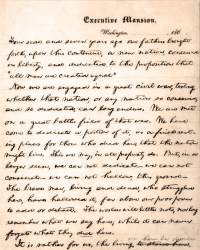 Executive Mansion,
Washington, 186
How soon and seven years ago our fathers brought
forth, upon this continent, a new nation, conceived
in liberty, and dedicated to the proposition that
"all men are created equal"
Now we are engaged in a great civil war, testing
whether that nation, or any nation so conceived,
and so dedicated, can long endure. We are met
on a great battle field of that war. We have
come to dedicate a portion of it, as a final rest-
ing place for those who died here, that the nation
might live. This we may, in all propriety do. But, in a
larger sense, we can not dedicate we can not
consecrate we can not hallow, this ground
The brave men, living and dead, who struggled
here, have hallowed it, far above our poor power
to add or detract. The world will little note, nor long
remember what we say here; while it can never
forget what they did here.
It is rather for us, the living,